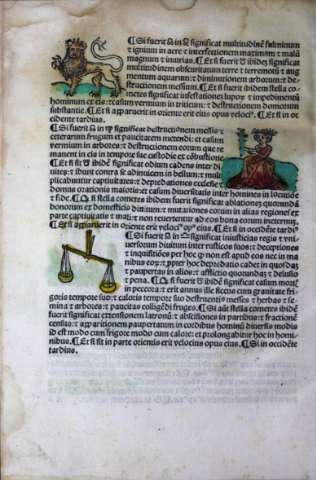 ¶ Si fuerit ☊ in ♌ significat multitudinē fulminum
⁊ ignium in aere ⁊ interfectionem maximā ⁊ mala
magnum ⁊ iniurias. ¶ Et si fuerit ☋ ibidē significat
multitudinem obscuritatum terre ⁊ terremotū ⁊ aug
mentum aquarum: ⁊ diminutionem arborum: ⁊ de
structionem messiū. ¶ Et si fuerit ibidem stella co
metes significat infestationes lupoꝝ ⁊ impedimentū
hominum ex eis: ⁊ casum vermium in triticis: ⁊ destructionem domorum
subtiliter. ¶ Et si apparuerit in oriente erit eius opus velociꝰ. ¶ Et si in oc
cidente tardius.
¶ Si fuerit ☊ in ♍ significat destructionem messis ⁊
ceterarum frugum ⁊ paucitatem metendi: ⁊ casum
vermium in arbores: ⁊ destructionem eorum que re
manent in eis in tempore sue custodie ⁊ cōdustione
¶ Et si ☋ ibidē significat odium cadens inter di
uites: ⁊ ibunt contra se adinuicem in bellum: ⁊ mult
plicabuntur captiuitates: ⁊ depredationes excessiue
domus orationis maioris: ⁊ casum diuersitatis inter homines in
⁊ fide. ¶ Et si stella cometes ibidem fuerit significat ablationez quorundam
donorum ex domibus diuitum: ⁊ mutationes eorum in alias regiones ex
parte captiuitatis ⁊ mali: ⁊ non reuertentur ad eos bona eorum incternum
¶ Et si apparuerit in oriente erit velociꝰ opus eiꝰ. ¶ Et si in occidēte tardiꝰ
¶ Si fuerit ☊ in ♎ significat iniusticias regis ⁊ vni
uersorum diuitum inter rusticos suos: ⁊ deceptiones
⁊ inquisitiones per hoc quod non est apud eos nec in vir
tibus eoꝝ: propter hoc depredatio cadet in quosdaꝫ
⁊ paupertas in alios: ⁊ afflictio quorundaꝫ ⁊ delusio
⁊ pena. ¶ Et si fuerit ☋ ibidē significat casum mortis
in peccora: ⁊ erit annus ille siccus cum grauitate fri
goris tempore suo: ⁊ caloris tempore suo destruentis messes ⁊ herbas ⁊ se
mina ⁊ arbores: ⁊ paucitas colligendi fruges. ¶ Si aūt stella cometes ibidē
fuerit significat extensionem latronū: ⁊ abscisiones in partibus: ⁊ fractionē
census: ⁊ apparitionem pauperatum in cordibus hominū diuersis modis
id est modo cum frigore modo cum calore: ⁊ prolongabitur hoc in homi
nibus. ¶ Et si sit in parte orientis erit velocius opus eius. ¶ Si in occidēte
tardius.